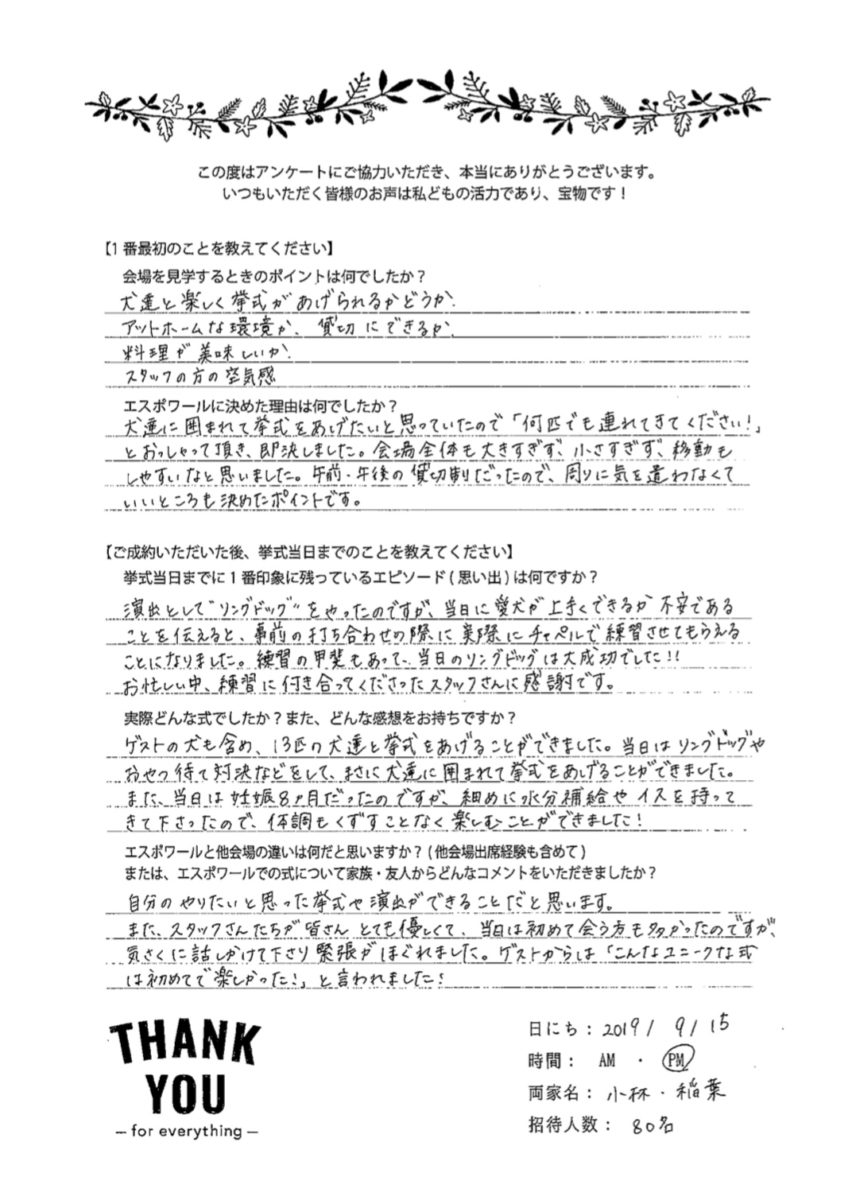 この度はアンケートにご協力いただき、本当にありがとうございます。
いつもいただく皆様のお声は私どもの活力であり、宝物です！
【1番最初のことを教えてください】
会場を見学するときのポイントは何でしたか？
犬達と楽しく挙式があげられるかどうか.
アットホームな環境か、貸切にできるか.
料理が美味しいか.
スタッフの方の空気感
エスポワールに決めた理由は何でしたか？
犬達に囲まれて挙式をあげたいと思っていたので「何匹でも連れてきてください！」
とおっしゃって頂き、即決しました。会場全体も大きすぎず、小さすぎず、移動も
しやすいなと思いました。午前・午後の貸切制だったので、周りに気を遣わなくて
いいところも決めたポイントです。
【ご成約いただいた後、挙式当日までのことを教えてください】
挙式当日までに1番印象に残っているエピソード(思い出)は何ですか？
演出として"リングドッグ"をやったのですが、当日に愛犬が上手くできるか不安である
ことを伝えると、事前の打ち合わせの際に実際にチャペルで練習させてもらえる
ことになりました。練習の甲斐もあって、当日のリングドッグは大成功でした!!
お忙しい中、練習に付き合ってくださったスタッフさんに感謝です。
実際どんな式でしたか？また、どんな感想をお持ちですか？
ゲストの犬も含め、13匹の犬達と挙式をあげることができました。当日はリングドッグや
おやつ待て対決などをして、まさに犬達に囲まれて挙式をあげることができました。
また、当日は妊娠8ヶ月だったのですが、細めに水分補給やイスを持って
きて下さったので、体調もくずすことなく楽しむことができました！
エスポワールと他会場の違いは何だと思いますか？(他会場出席経験も含めて)
または、エスポワールでの式について家族・友人からどんなコメントをいただきましたか？
自分のやりたいと思った挙式や演出ができることだと思います。
また、スタッフさんたちが皆さんとても優しくて、当日は初めて会う方も多かったのですが、
気さくに話しかけて下さり緊張がほぐれました。ゲストからは「こんなユニークな式
は初めてで楽しかった！」と言われました！
THANK
YOU
– for everything –
日にち：2019/9/15
時間： AM ・ PM
両家名：小林・稲葉
招待人数： 80名